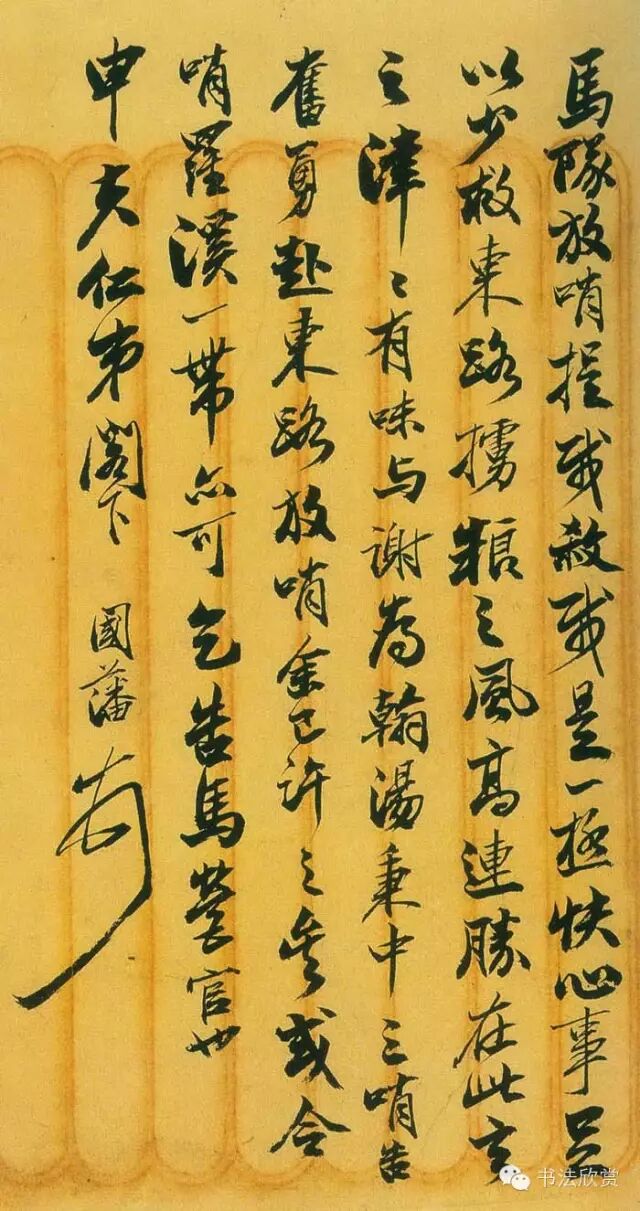 馬隊放哨捉賊殺賊是一極快心事只
以少救東路擄粮之風高連勝在此言
之津〻有味与謝為翰湯秉中三哨告
奮勇赴東路放哨余已許之矣或令
哨羅溪一帶亦可乞告馬營官也
申夫仁弟閣下 國藩
书法欣赏